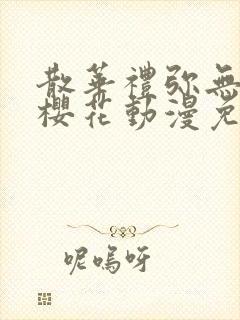 散華禮弥無
櫻花動漫免
呢嗚呀